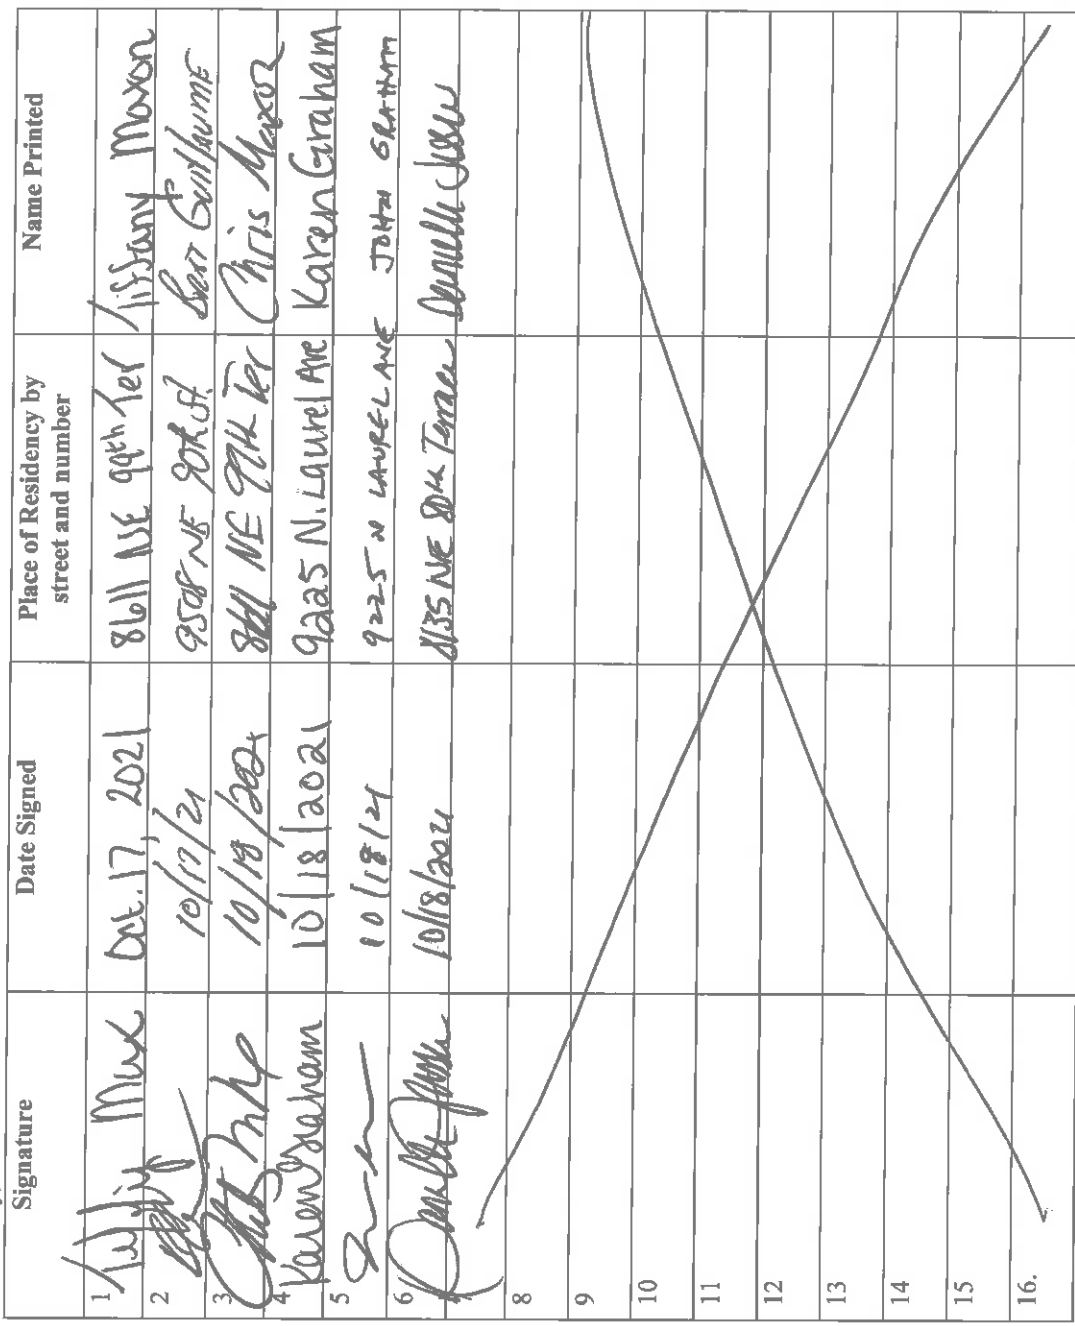 Signature Date Signed Place of Residency by street and number Name Printed
1 Oct. 17, 2021 8611 NE 99th Ter Tiffany Maxon
2 10/17/21 9508 NE 90th St. Guillaume
3 10/18/2021 8611 NE 99th Ter Chris Maxon
4 Karen Graham 10/18/2021 9225 N. Laurel Ave Karen Graham
5 10/18/21 9225 N LAUREL AVE JOHN GRAHAM
6 10/18/2021 8135 NE 80th Terrace Danielle
7
8
9
10
11
12
13
14
15
16.